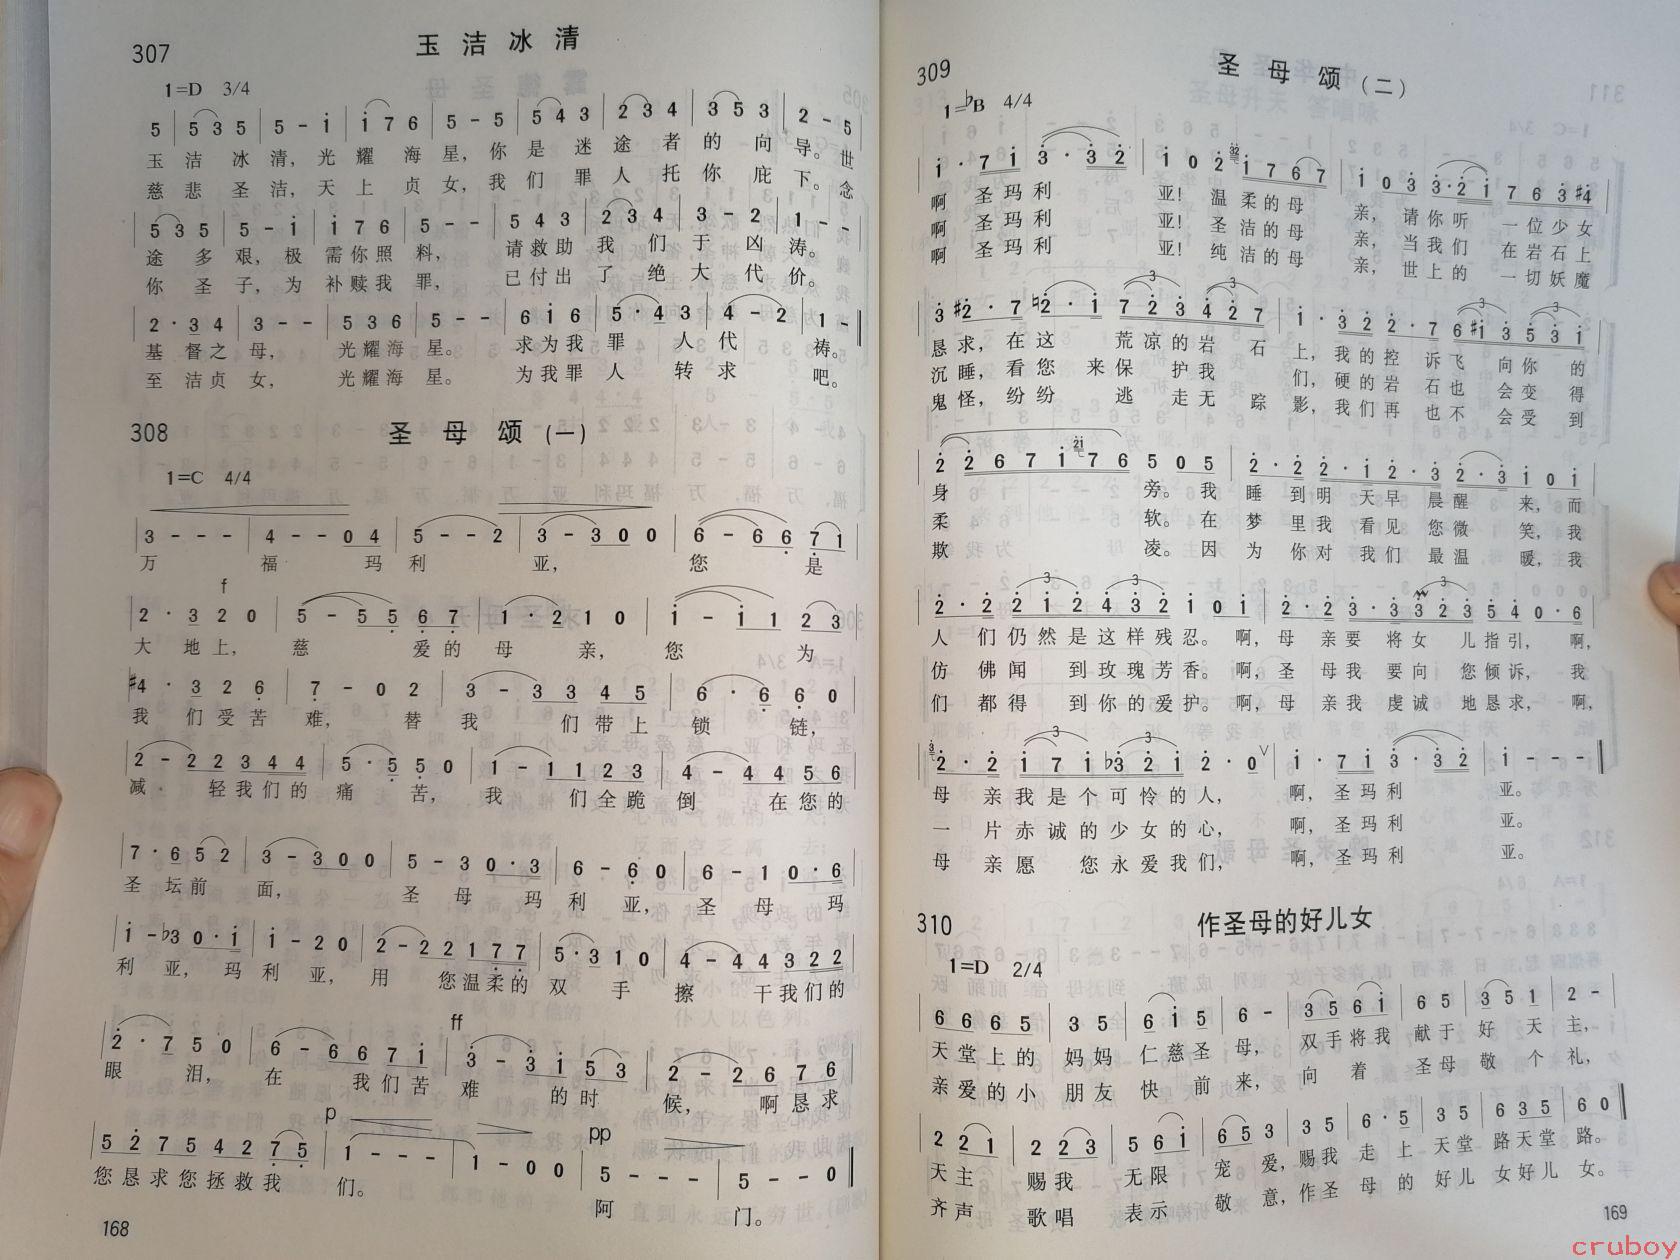 307
玉洁冰清
1=D 3/4
5 | 5 3 5 | 5 - i | i 7 6 | 5 - 5 | 5 4 3 | 2 3 4 | 3 5 3 | 2 - 5
玉 洁 冰 清，光 耀 海 星，你 是 迷 途 者 的 向 导。世
慈 悲 圣 洁，天 上 贞 女，我 们 罪 人 托 你 庇 下。念
5 3 5 | 5 - i | i 7 6 | 5 - - | 5 4 3 | 2 3 4 | 3 - 2 | 1 - -
途 多 艰，极 需 你 照 料，请 救 助 我 们 于 凶 涛。
你 圣 子，为 补 赎 我 罪，已 付 出 了 绝 大 代 价。
2 · 3 4 | 3 - - | 5 3 6 | 5 - - | 6 i 6 | 5 · 4 3 | 4 - 2 | 1 -
基 督 之 母，光 耀 海 星。求 为 我 罪 人 代 祷。
至 洁 贞 女，光 耀 海 星。为 我 罪 人 转 求 吧。
308
圣母颂（一）
1=C 4/4
3 - - - | 4 - - 0 4 | 5 - - 2 | 3 - 3 0 0 | 6 - 6 6 7 1
万 福 玛 利 亚，您 是
f
2 · 3 2 0 | 5 - 5 6 7 | 1 · 2 1 0 | i - i 1 2 3
大 地 上，慈 爱 的 母 亲，您 为
#4 · 3 2 6 | 7 - 0 2 | 3 - 3 3 4 5 | 6 · 6 6 0
我 们 受 苦 难，替 我 们 带 上 锁 链，
2 - 2 2 3 4 4 | 5 · 5 5 0 | 1 - 1 1 2 3 | 4 - 4 4 5 6
减 轻 我 们 的 痛 苦，我 们 全 跪 倒 在 您 的
7 · 6 5 2 | 3 - 3 0 0 | 5 - 3 0 · 3 | 6 - 6 0 | 6 - 1 0 · 6
圣 坛 前 面，圣 母 玛 利 亚，圣 母 玛
i - b3 0 · i | i - 2 0 | 2 - 2 2 1 7 7 | 5 · 3 1 0 | 4 - 4 4 3 2 2
利 亚，玛 利 亚，用 您 温 柔 的 双 手 擦 干 我 们 的
ff
2 · 7 5 0 | 6 - 6 6 7 i | 3 - 3 i 5 3 | 2 - 2 6 7 6
眼 泪，在 我 们 苦 难 的 时 候，啊 恳 求
p
pp
5 2 7 5 4 2 7 5 | 1 - - - | 1 - 0 0 | 5 - - - | 5 - - 0
您 恳 求 您 拯 救 我 们。阿 门。
168
309
圣母颂（二）
1=bB 4/4
i · 7 i 3 · 3 2 | i 0 2 i 7 6 7 | i 0 3 3 · 2 i 7 6 3 #4
啊 圣 玛 利 亚！温 柔 的 母 亲，请 你 听 一 位 少 女
啊 圣 玛 利 亚！圣 洁 的 母 亲，当 我 们 在 岩 石 上
啊 圣 玛 利 亚！纯 洁 的 母 亲，世 上 的 一 切 妖 魔
3 #2 · 7 2 · i 7 2 3 4 2 7 | i · 3 2 2 · 7 6 #i 3 5 3 i
恳 求，在 这 荒 凉 的 岩 石 上，我 的 控 诉 飞 向 你 的
沉 睡，看 您 来 保 护 我 们，硬 的 岩 石 也 会 变 得
鬼 怪，纷 纷 逃 走 无 踪 影，我 们 再 也 不 会 受 到
2 2 6 7 i 7 6 5 0 5 | 2 · 2 2 · i 2 · 3 2 · 3 i 0 i
身 旁。我 睡 到 明 天 早 晨 醒 来，而
柔 软。在 梦 里 我 看 见 您 微 笑，我
欺 凌。因 为 你 对 我 们 最 温 暖，我
2 · 2 2 i 2 4 3 2 i 0 i | 2 · 2 3 · 3 3 2 3 5 4 0 · 6
人 们 仍 然 是 这 样 残 忍。啊，母 亲 要 将 女 儿 指 引，啊，
仿 佛 闻 到 玫 瑰 芳 香。啊，圣 母 我 要 向 您 倾 诉，我
们 都 得 到 你 的 爱 护。啊，母 亲 我 虔 诚 地 恳 求，啊，
2 · 2 i 7 i b3 2 i 2 · 0 | i · 7 i 3 · 3 2 | i - - -
母 亲 我 是 个 可 怜 的 人，啊，圣 玛 利 亚。
一 片 赤 诚 的 少 女 的 心，啊，圣 玛 利 亚。
母 亲 愿 您 永 爱 我 们，啊，圣 玛 利 亚。
310
作圣母的好儿女
1=D 2/4
6 6 6 5 | 3 5 | 6 i 5 | 6 - | 3 5 6 i | 6 5 | 3 5 1 | 2 -
天 堂 上 的 妈 妈 仁 慈 圣 母，双 手 将 我 献 于 好 天 主，
亲 爱 的 小 朋 友 快 前 来，向 着 圣 母 敬 个 礼，
2 2 1 | 2 2 3 | 5 6 i | 6 5 3 | 3 5 | 6 · 5 | 3 5 | 6 3 5 | 6 0
天 主 赐 我 无 限 宠 爱，赐 我 走 上 天 堂 路 天 堂 路。
齐 声 歌 唱 表 示 敬 意，作 圣 母 的 好 儿 女 好 儿 女。
169
cruboy